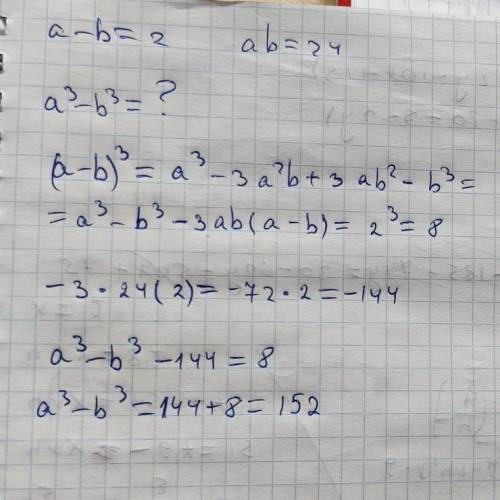 a-b=2 ab=24
a³-b³=?
(a-b)³= a³-3a²b+3ab²-b³=
=a³-b³-3ab(a-b)= 2³=8
-3·24(2)=-72·2=-144
a³-b³-144=8
a³-b³=144+8=152